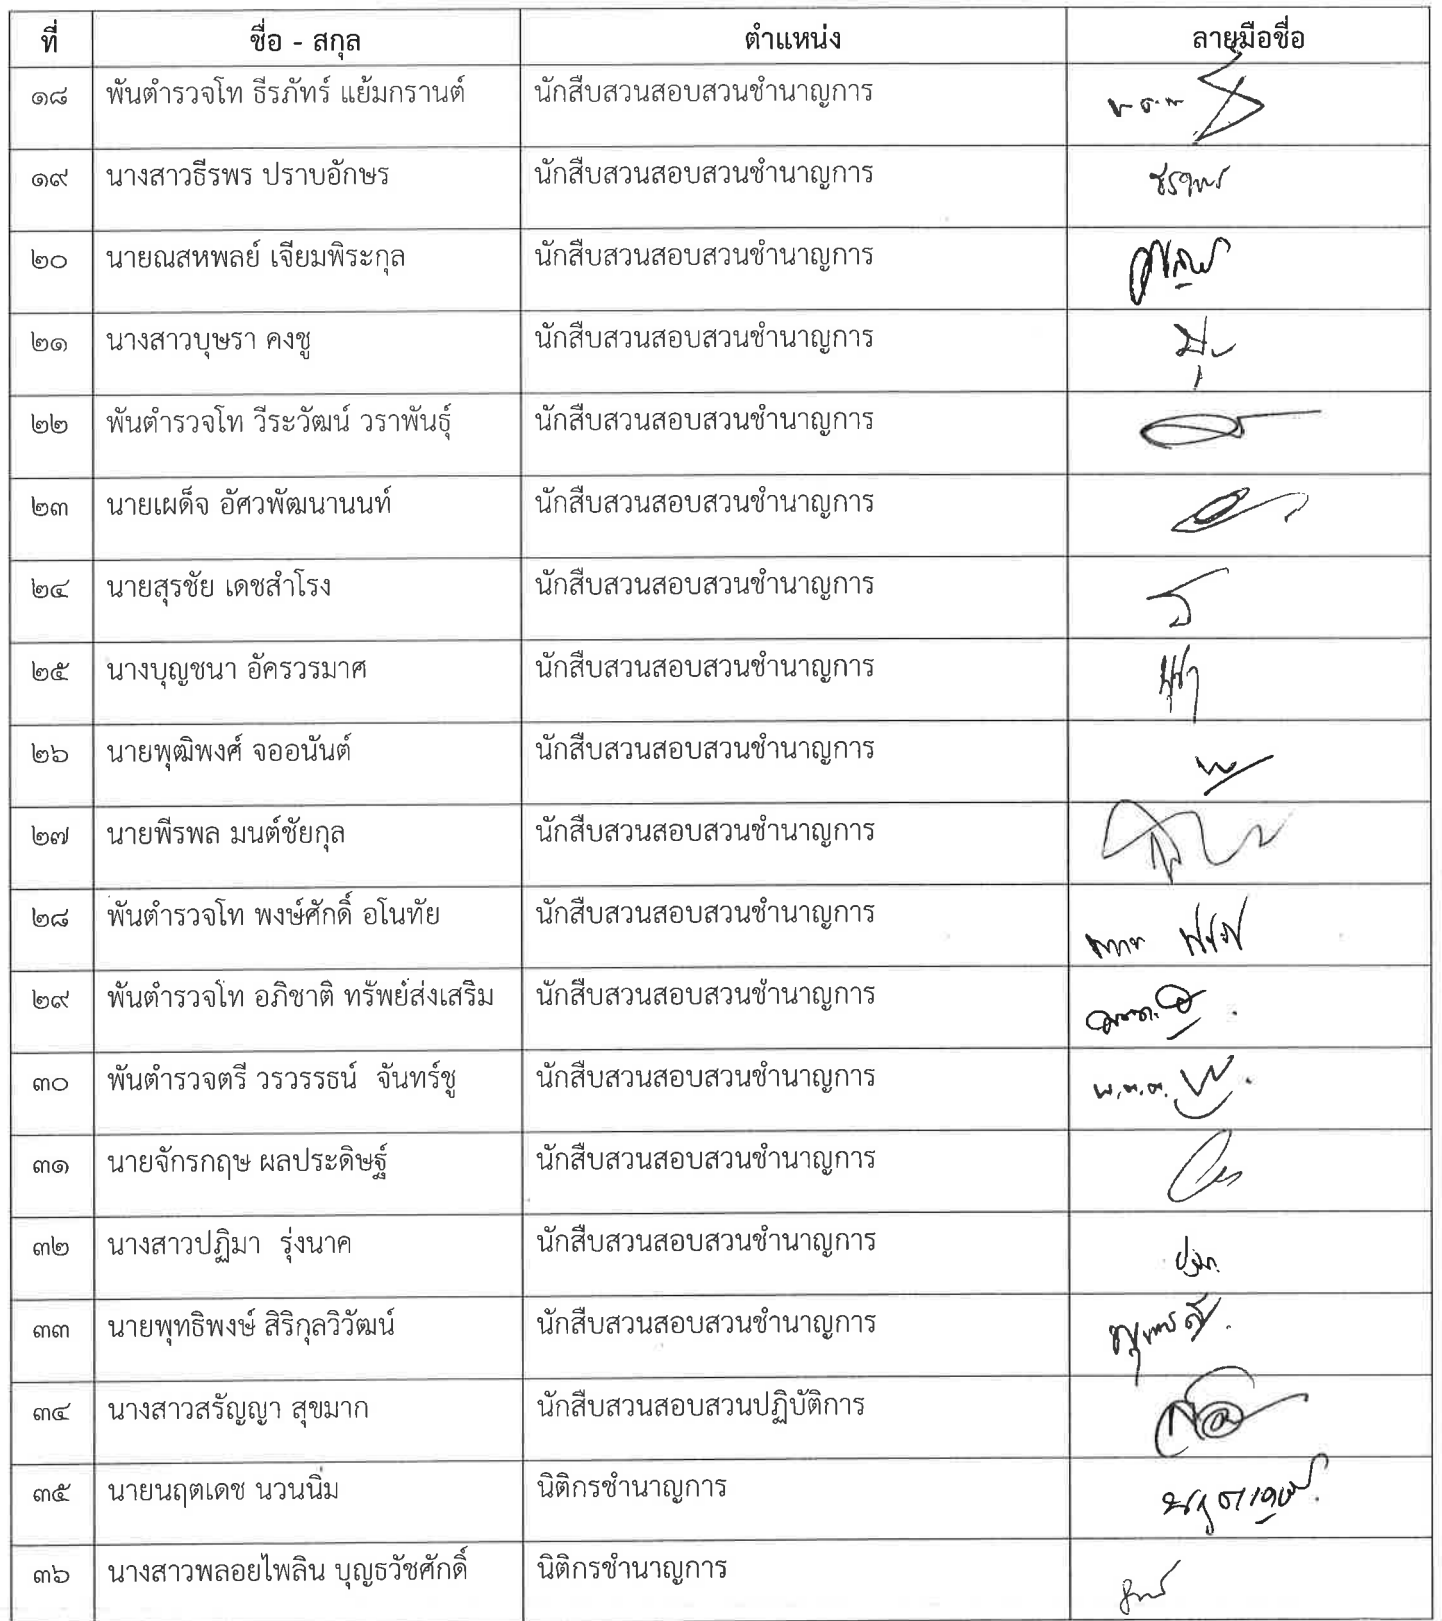 ที่ ชื่อ - สกุล ตำแหน่ง ลายมือชื่อ
๑๘ พันตำรวจโท ธีรภัทร์ แย้มกรานต์ นักสืบสวนสอบสวนชำนาญการ
๑๙ นางสาวธีรพร ปราบอักษร นักสืบสวนสอบสวนชำนาญการ
๒๐ นายณสหพลย์ เจียมพิระกุล นักสืบสวนสอบสวนชำนาญการ
๒๑ นางสาวบุษรา คงชู นักสืบสวนสอบสวนชำนาญการ
๒๒ พันตำรวจโท วีระวัฒน์ วราพันธุ์ นักสืบสวนสอบสวนชำนาญการ
๒๓ นายเผด็จ อัศวพัฒนานนท์ นักสืบสวนสอบสวนชำนาญการ
๒๔ นายสุรชัย เดชสำโรง นักสืบสวนสอบสวนชำนาญการ
๒๕ นางบุญชนา อัครวรมาศ นักสืบสวนสอบสวนชำนาญการ
๒๖ นายพุฒิพงศ์ จออนันต์ นักสืบสวนสอบสวนชำนาญการ
๒๗ นายพีรพล มนต์ชัยกุล นักสืบสวนสอบสวนชำนาญการ
๒๘ พันตำรวจโท พงษ์ศักดิ์ อโนทัย นักสืบสวนสอบสวนชำนาญการ
๒๙ พันตำรวจโท อภิชาติ ทรัพย์ส่งเสริม นักสืบสวนสอบสวนชำนาญการ
๓๐ พันตำรวจตรี วรวรรธน์ จันทร์ชู นักสืบสวนสอบสวนชำนาญการ พ.ต.ต.
๓๑ นายจักรกฤษ ผลประดิษฐ์ นักสืบสวนสอบสวนชำนาญการ
๓๒ นางสาวปฏิมา รุ่งนาค นักสืบสวนสอบสวนชำนาญการ
๓๓ นายพุทธิพงษ์ สิริกุลวิวัฒน์ นักสืบสวนสอบสวนชำนาญการ
๓๔ นางสาวสรัญญา สุขมาก นักสืบสวนสอบสวนปฏิบัติการ
๓๕ นายนฤตเดช นวนนิ่ม นิติกรชำนาญการ
๓๖ นางสาวพลอยไพลิน บุญธวัชศักดิ์ นิติกรชำนาญการ